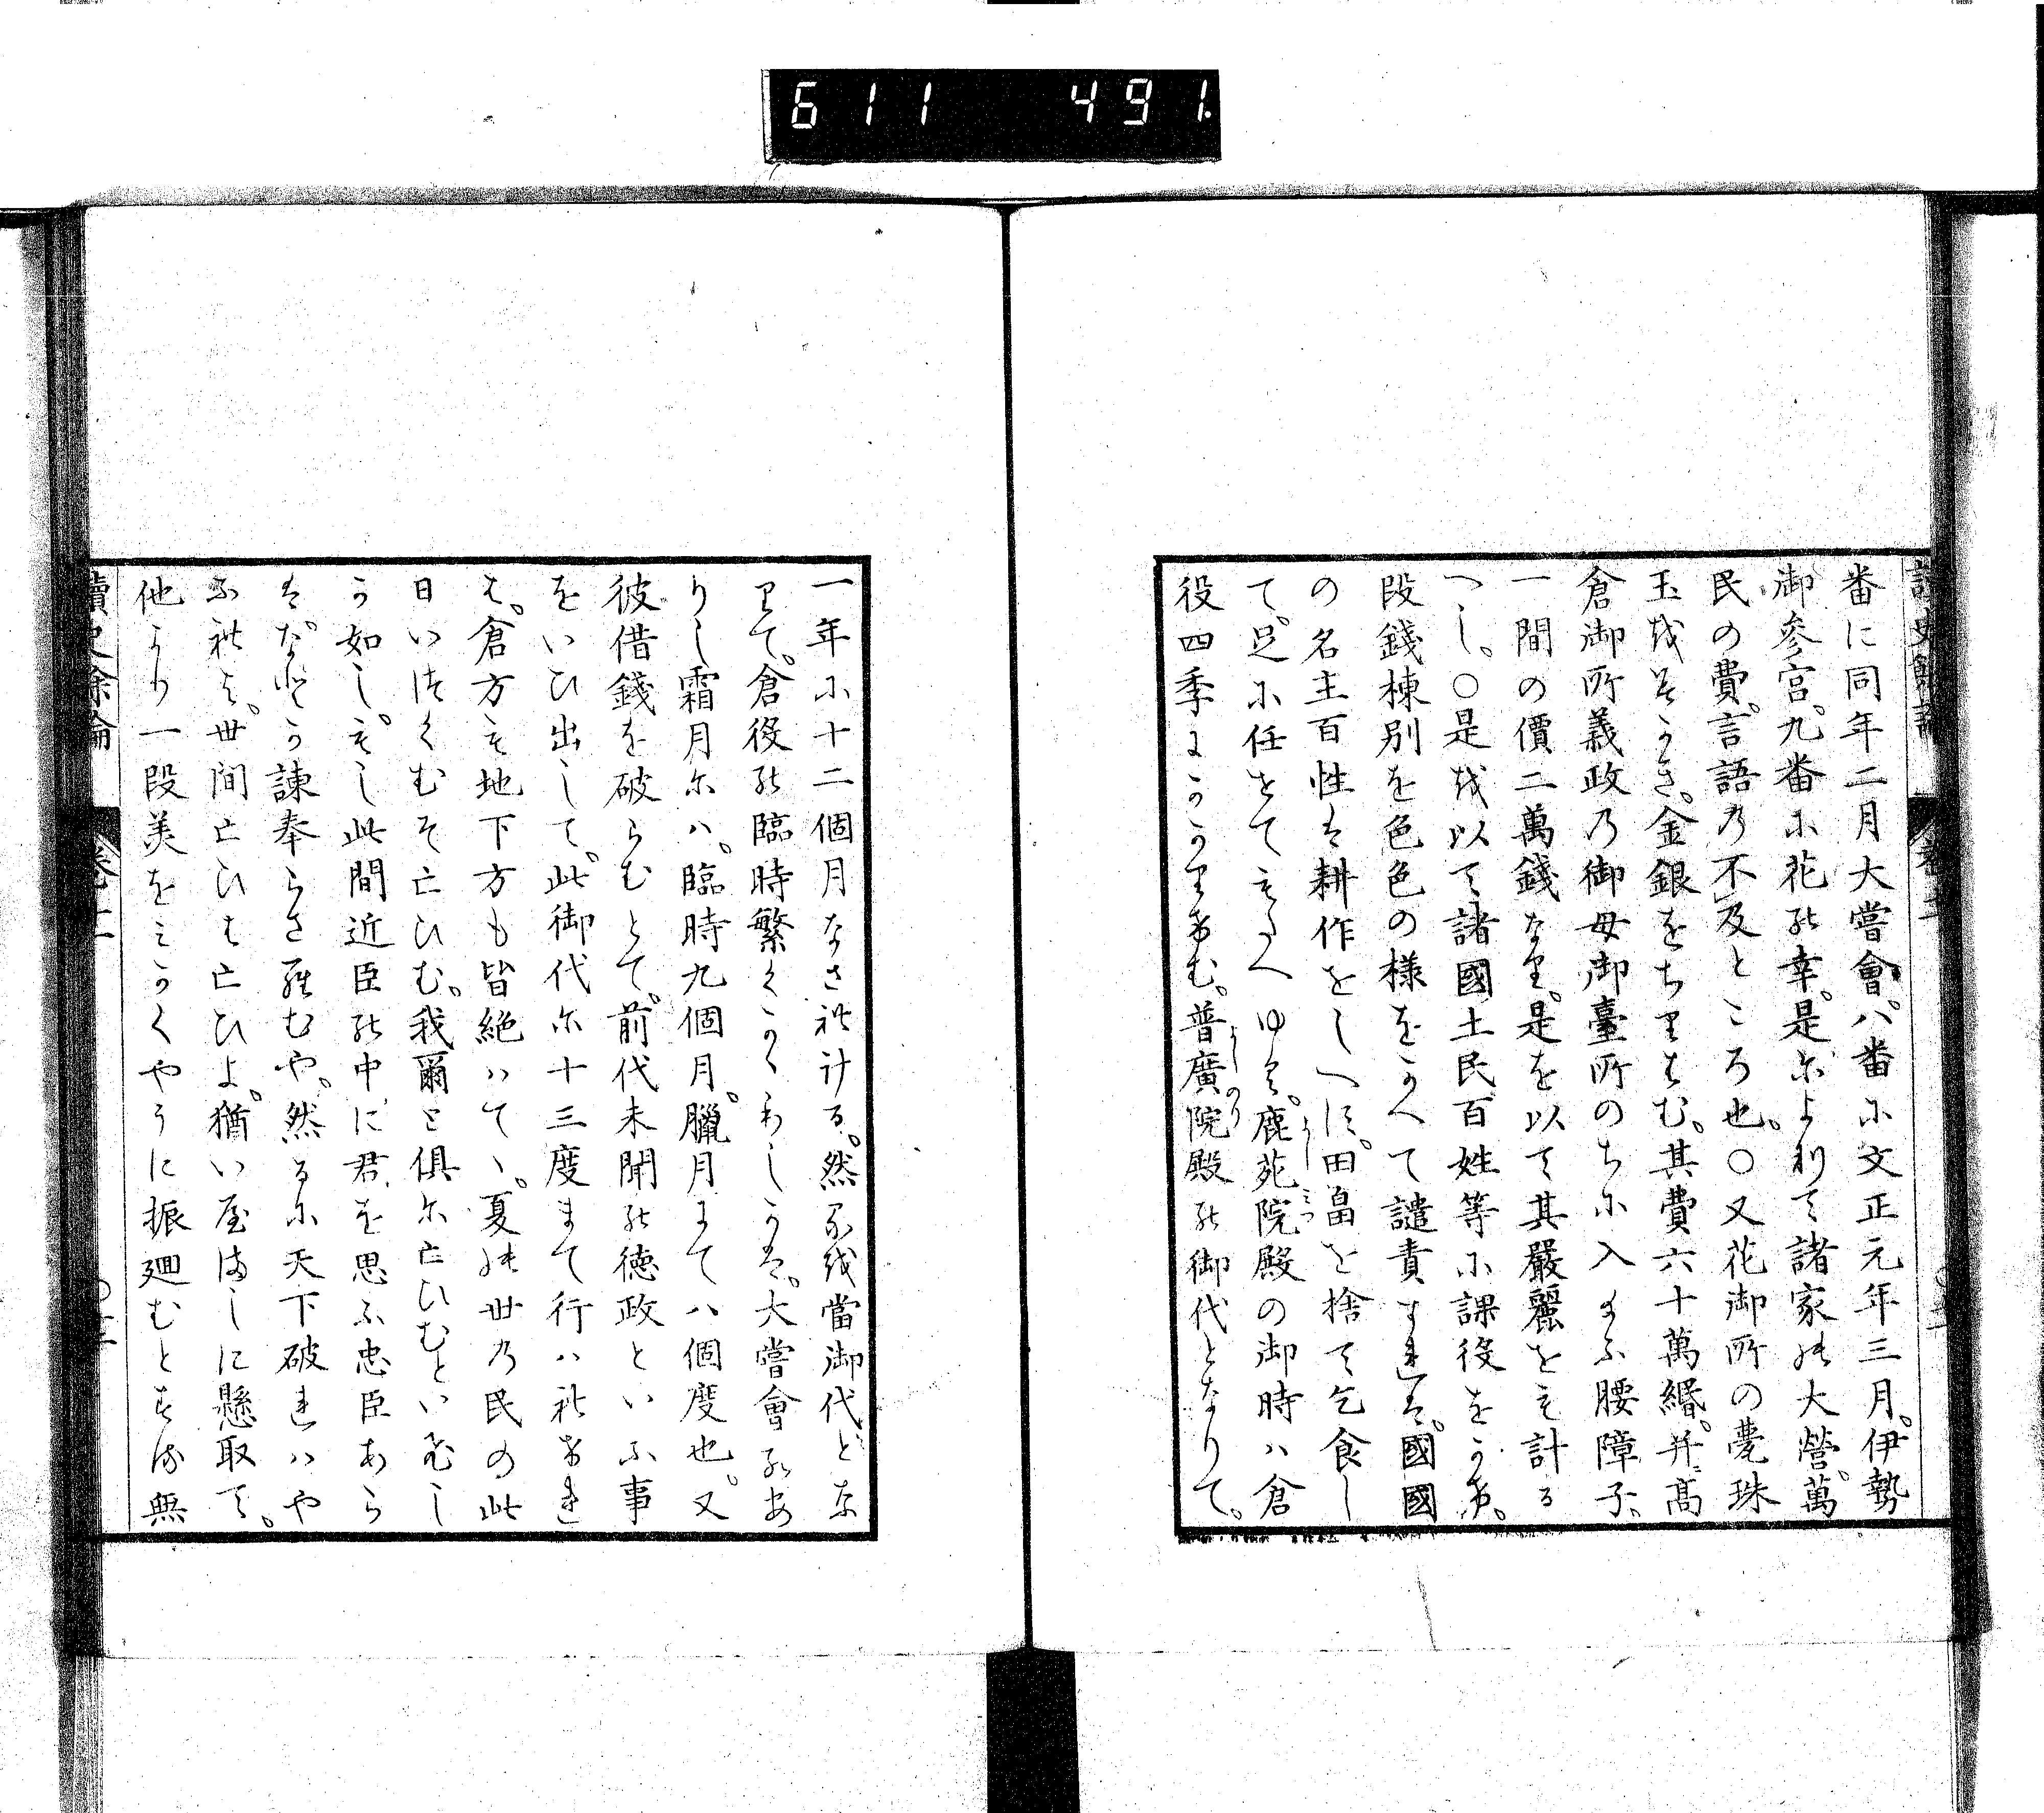 611 491.
番に同年二月大嘗會。八番に文正元年三月。伊勢
御参宮。九番に花の幸。是によりて諸家の大營。萬
民の費。言語の不及ところ也。○又花御所の甍珠
玉をみがき。金銀をちりばむ。其費六十萬緡。并高
倉御所義政の御母御臺所のちに入まふ腰障子。
一間の價二萬錢なり。是を以て其嚴麗をも計る
へし。○是を以て諸國土民百姓等に課役をかけ。
段錢棟別を色色の様をかへて譴責すれは。國國
の名主百性は耕作をしへす。田畠を捨て乞食し
て。足に任せてもたへゆく。鹿苑院殿の御時ハ倉
よしみつ
役四季にかかりけむ。普廣院殿の御代となりて。
よしのり
一年に十二個月なされける。然るを當御代とな
りて。倉役の臨時繁くかくわしかは。大嘗會のあ
りし霜月にハ。臨時九個月。臘月まてハ個度也。又
彼借錢を破らむとて。前代未聞の徳政といふ事
をいひ出して。此御代に十三度まて行ハれけれ
は。倉方も地下方も皆絶ハてゝ。夏の世の民の此
日いつくむそ亡ひむ。我爾と俱に亡ひむといひし
か如し。もし此間近臣の中に君を思ふ忠臣あら
は。なとか諫奉らさらむや。然るに天下破れハや
ふれよ。世間亡ひは亡ひよ。猶いやましに懸取て。
他より一段美をみかくやうに振廻むとする無
讀史餘論 卷十二